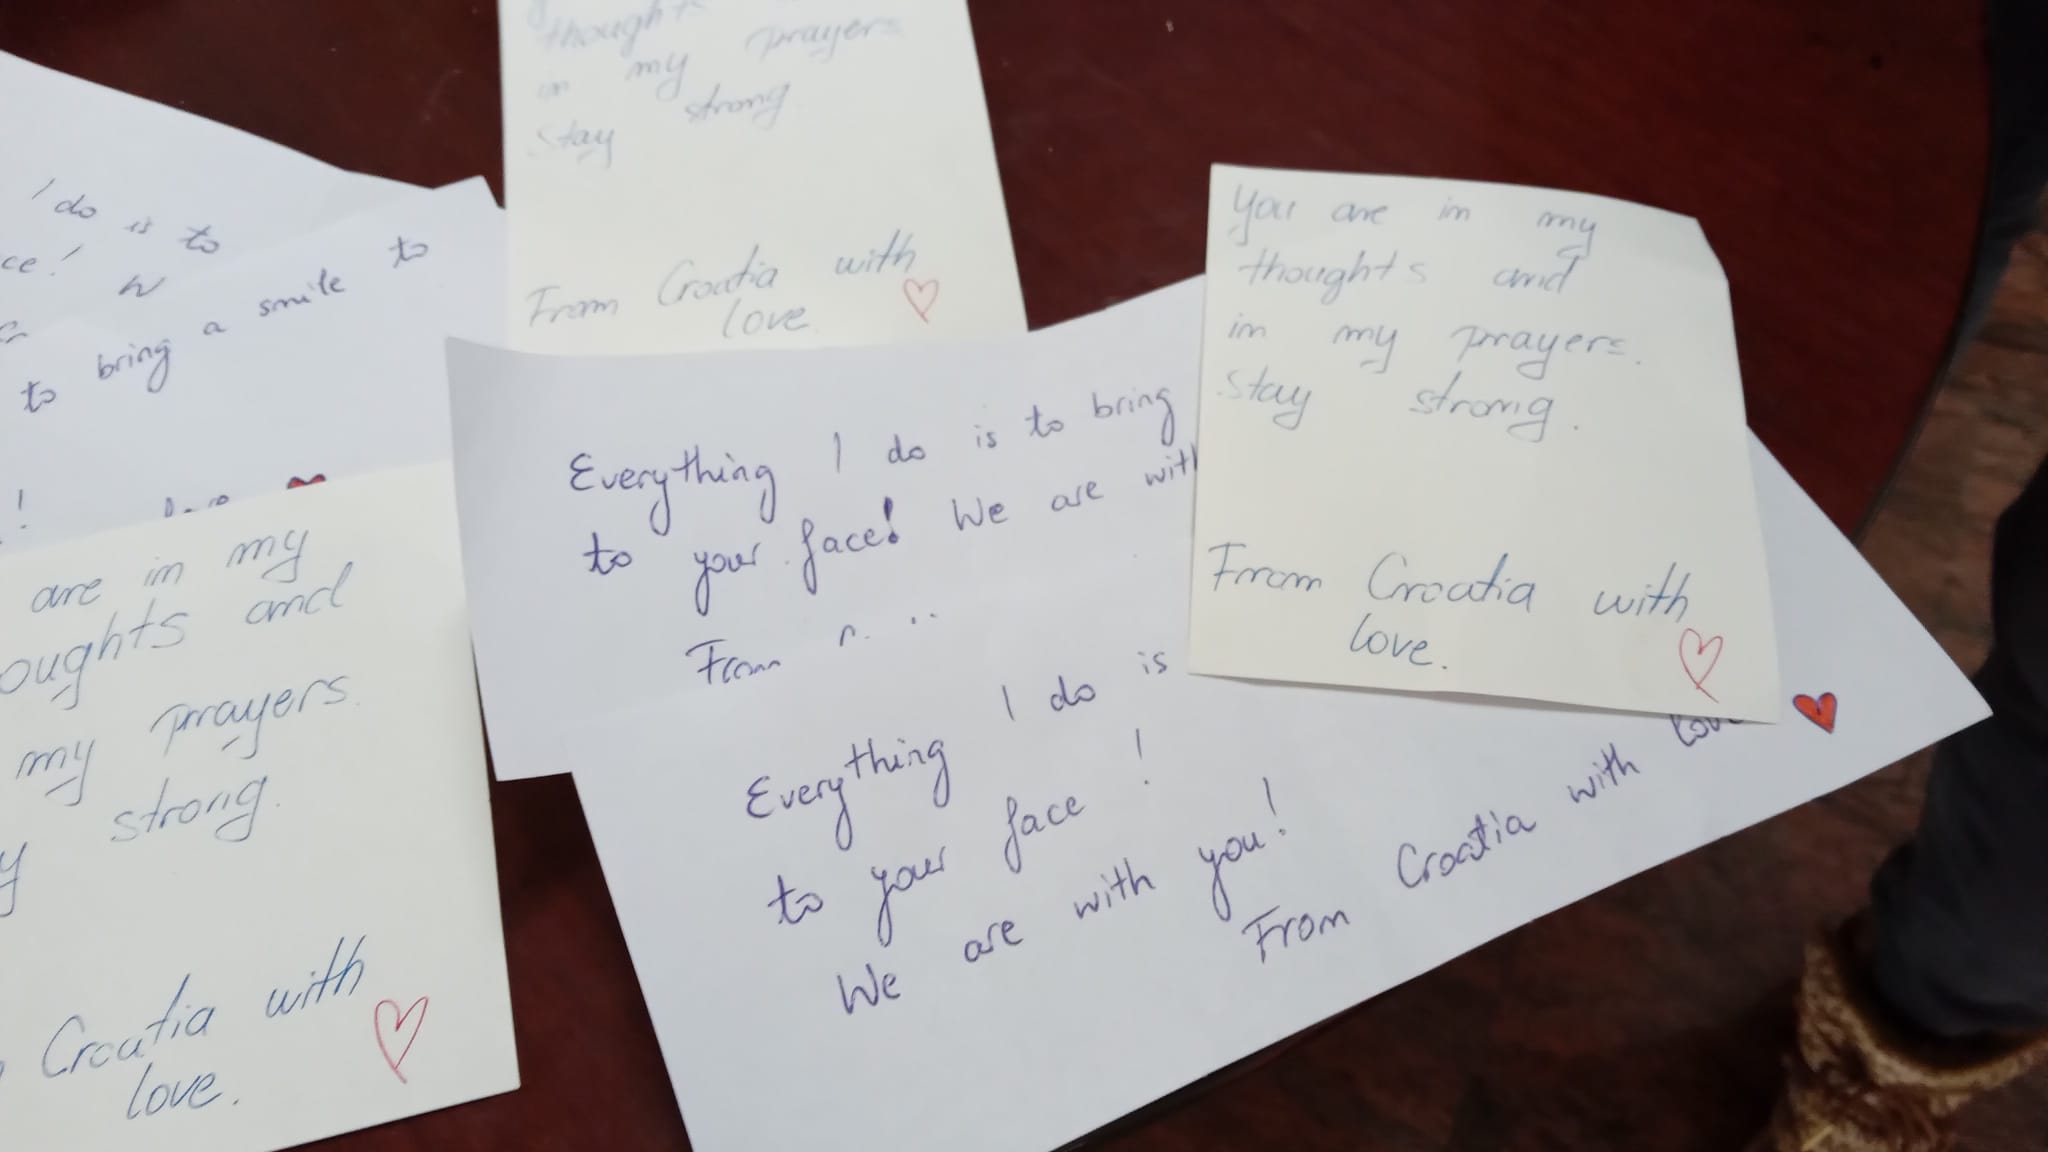 I do is to
to bring a smile to
are in my
and
my prayers.
strong.
Croatia with
love.
thoughts
in my prayers
stay strong
From Croatia with
love.
Everything I do is to bring
to your face! We are with
From
Everything I do is
to your face!
We are with you!
From Croatia with love
You are in my
thoughts and
in my prayers.
Stay strong.
From Croatia with
love.